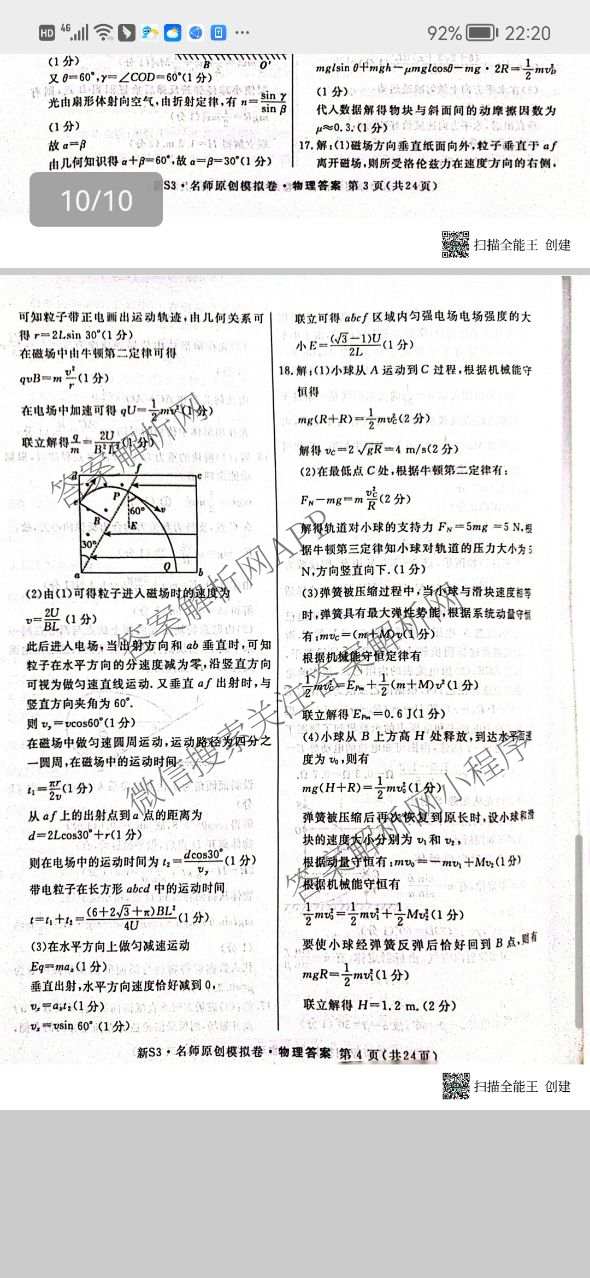 HD 46 92% 22:20
(1分)
B O'
又 θ=60°,γ=∠COD=60°(1分)
光由扇形体射向空气,由折射定律,有 n=sin γ/sin β
(1分)
故 α=β
由几何知识得 α+β=60°,故 α=β=30°(1分)
mglsin θ+mgh-μmglcosθ-mg·2R=1/2mv²D
(1分)
代入数据解得物块与斜面间的动摩擦因数为
μ≈0.3.(1分)
17.解:(1)磁场方向垂直纸面向外,粒子垂直于 af
离开磁场,则所受洛伦兹力在速度方向的右侧,
新S3·名师原创模拟卷·物理答案 第3页(共24页)
10/10
扫描全能王 创建
可知粒子带正电画出运动轨迹,由几何关系可
得 r=2Lsin 30°(1分)
在磁场中由牛顿第二定律可得
qvB=m v²/r(1分)
在电场中加速可得 qU=1/2mv²(1分)
联立解得 q/m=2U/B²L²(1分)
d f c
e P v
B 60°
E
30°
a Q b
(2)由(1)可得粒子进入磁场时的速度为
v=2U/BL(1分)
此后进入电场,当出射方向和 ab 垂直时,可知
粒子在水平方向的分速度减为零,沿竖直方向
可视为做匀速直线运动.又垂直 af 出射时,与
竖直方向夹角为 60°.
则 vy=vcos60°(1分)
在磁场中做匀速圆周运动,运动路径为四分之
一圆周,在磁场中的运动时间
t₁=πr/2v(1分)
从 af 上的出射点到 a 点的距离为
d=2Lcos30°+r(1分)
则在电场中的运动时间为 t₂=dcos30°/vy(1分)
带电粒子在长方形 abcd 中的运动时间
t=t₁+t₂=(6+2√3+π)BL²/4U(1分)
(3)在水平方向上做匀减速运动
Eq=maₓ(1分)
垂直出射,水平方向速度恰好减到 0,
vₓ=aₓt₂(1分)
vₓ=vsin 60°(1分)
联立可得 abcf 区域内匀强电场电场强度的大
小 E=(√3-1)U/2L(1分)
18.解:(1)小球从 A 运动到 C 过程,根据机械能守
恒得
mg(R+R)=1/2mv²C(2分)
解得 vC=2√gR=4 m/s(2分)
(2)在最低点 C 处,根据牛顿第二定律有:
FN-mg=m v²C/R(2分)
解得轨道对小球的支持力 FN=5mg=5 N,根
据牛顿第三定律知小球对轨道的压力大小为 5
N,方向竖直向下.(1分)
(3)弹簧被压缩过程中,当小球与滑块速度相等
时,弹簧具有最大弹性势能,根据系统动量守恒
有:mvC=(m+M)v(1分)
根据机械能守恒定律有
1/2mv²C=EPm+1/2(m+M)v²(1分)
联立解得 EPm=0.6 J(1分)
(4)小球从 B 上方高 H 处释放,到达水平面速
度为 v₀,则有
mg(H+R)=1/2mv²₀(1分)
弹簧被压缩后再次恢复到原长时,设小球和滑
块的速度大小分别为 v₁ 和 v₂,
根据动量守恒有:mv₀=-mv₁+Mv₂(1分)
根据机械能守恒有
1/2mv²₀=1/2mv²₁+1/2Mv²₂(1分)
要使小球经弹簧反弹后恰好回到 B 点,则有
mgR=1/2mv²₁(1分)
联立解得 H=1.2 m.(2分)
答案解析网
答案解析网APP
微信搜索关注答案解析网
答案解析网小程序
新S3·名师原创模拟卷·物理答案 第4页(共24页)
扫描全能王 创建